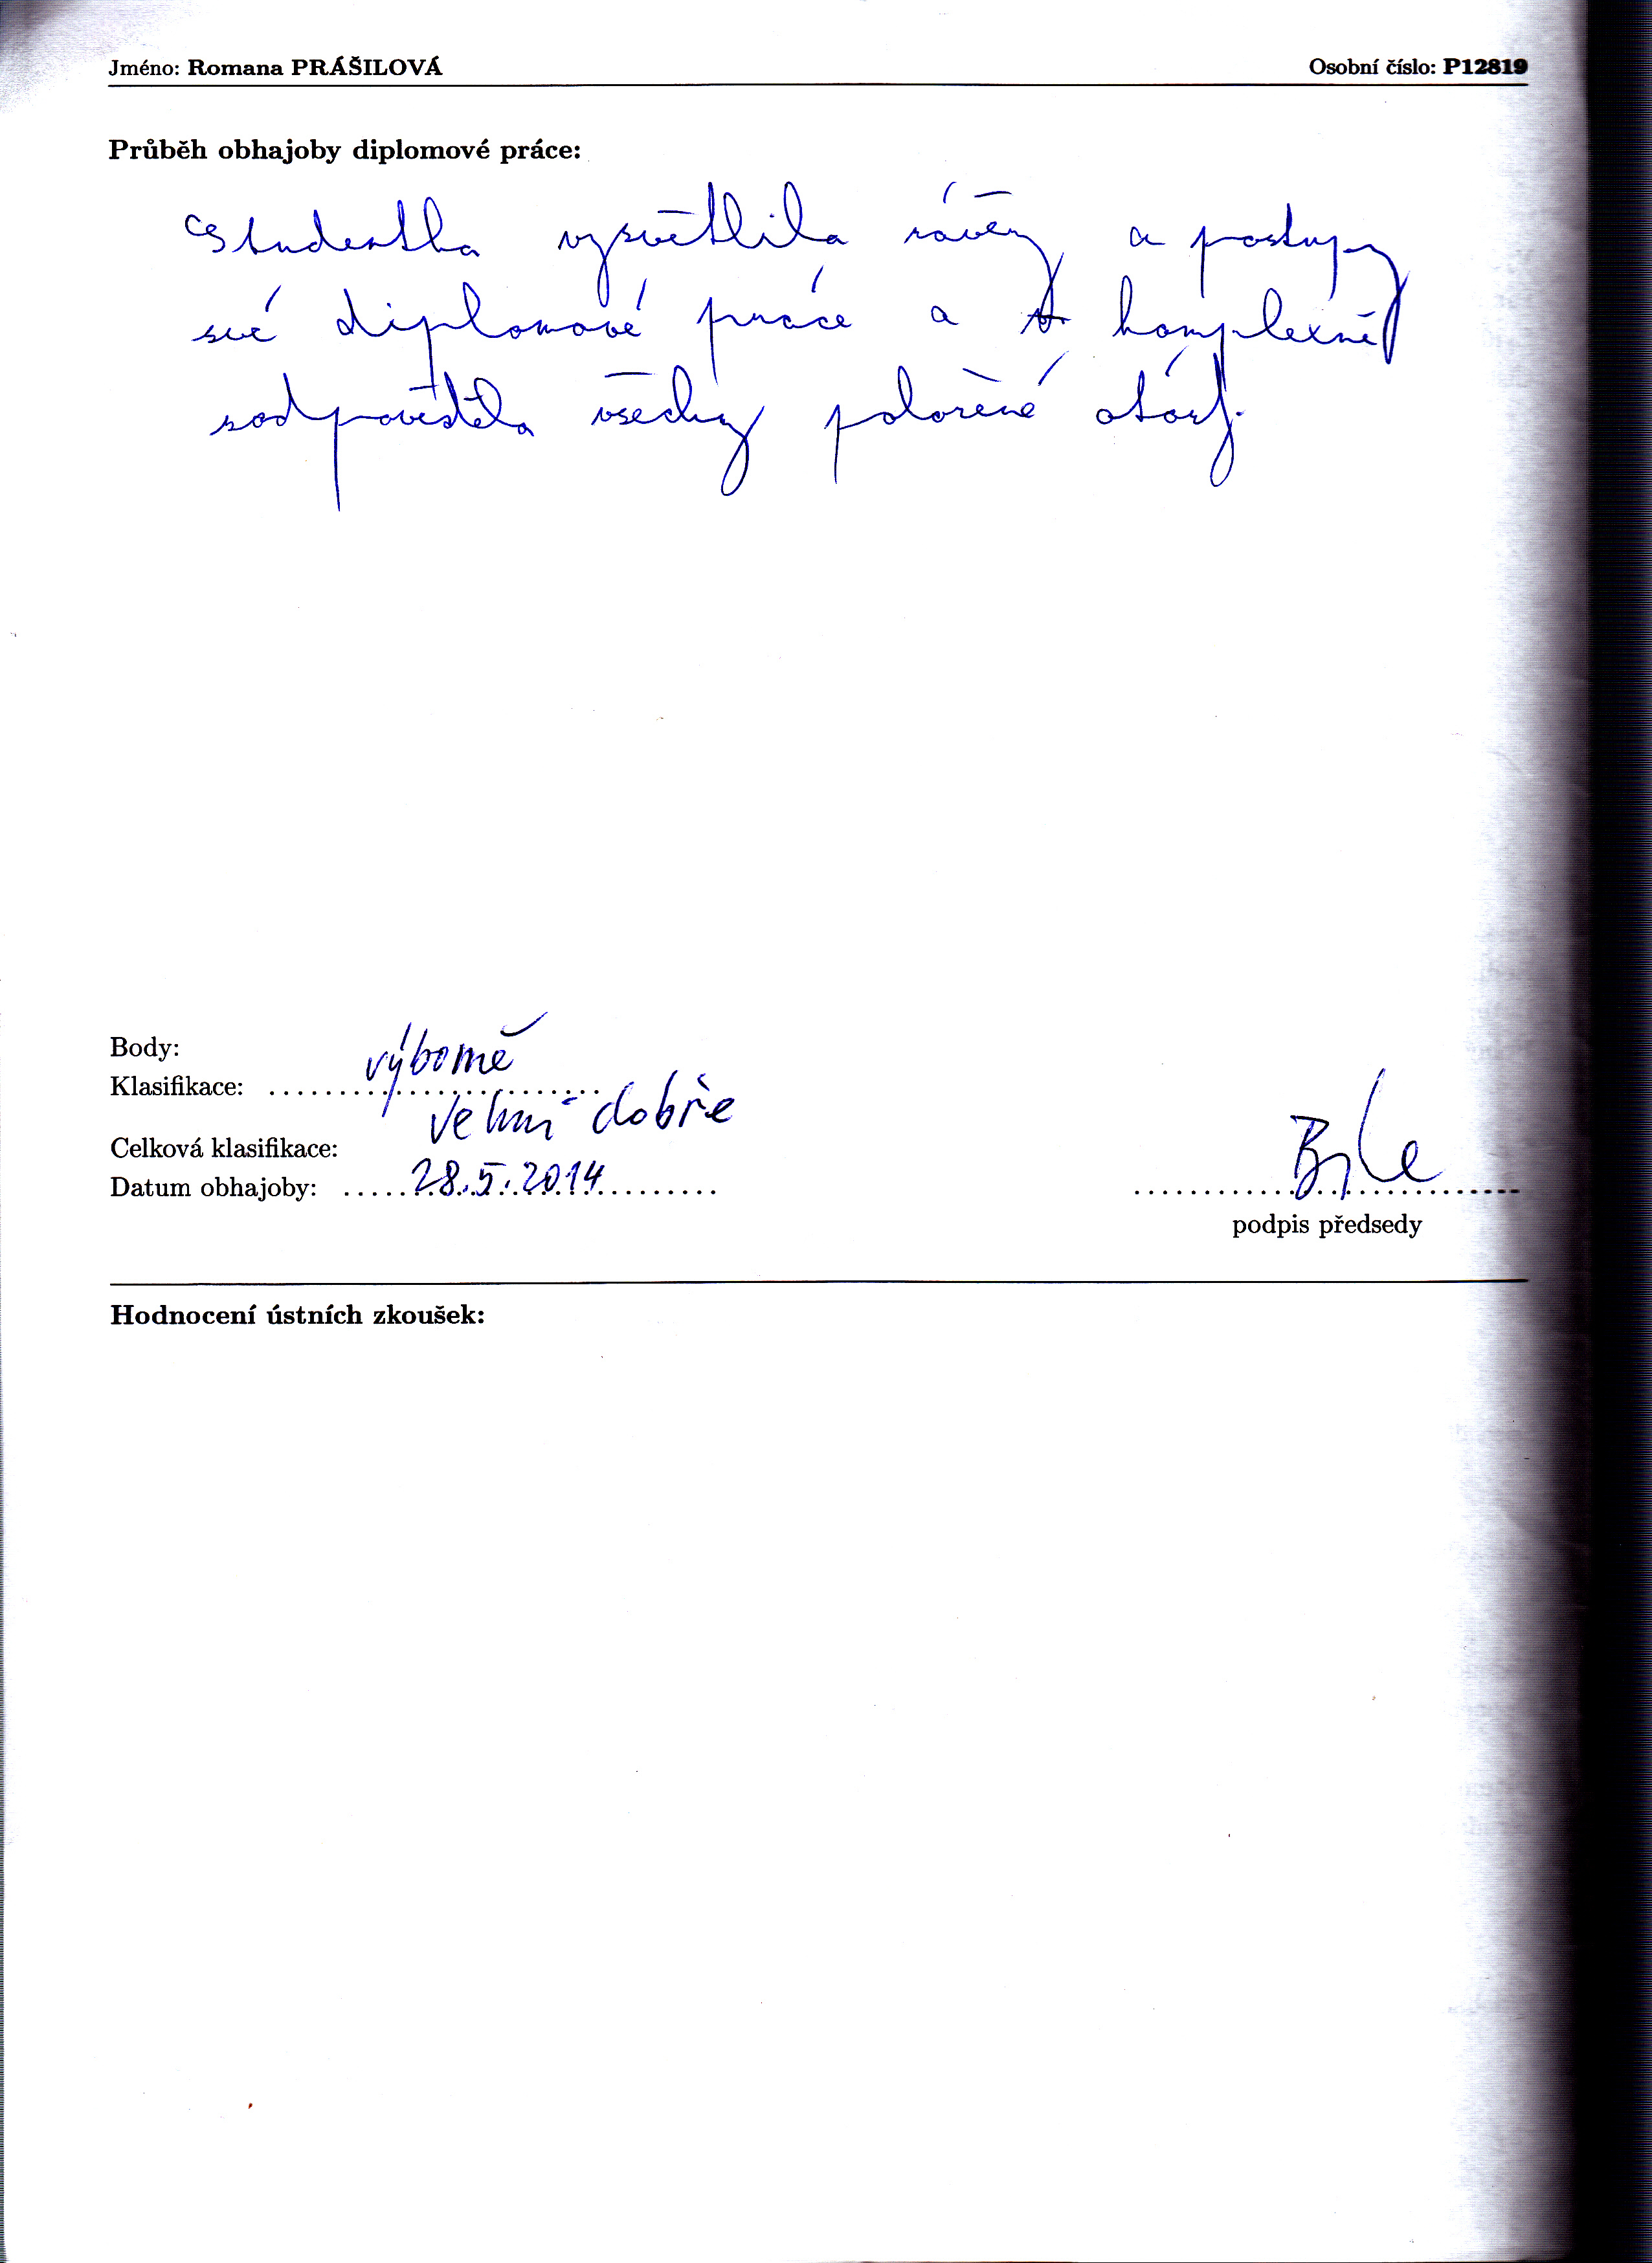 Jméno: Romana PRÁŠILOVÁ Osobní číslo: P12819
Průběh obhajoby diplomové práce:
Studentka vysvětlila závěry a postupy
své diplomové práce a komplexně
zodpověděla všechny položené otázky.
Body:
výborně
Klasifikace: ........................
velmi dobře
Celková klasifikace:
Datum obhajoby: 28.5.2014
podpis předsedy
Hodnocení ústních zkoušek: